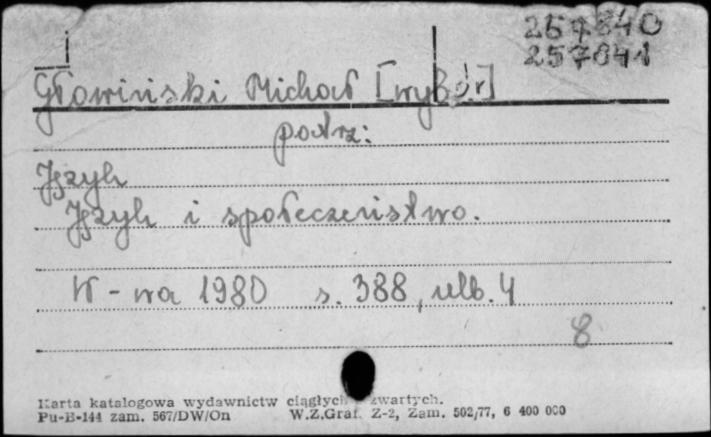 257840
257841
Głowiński Michał [wybór]
patrz:
Język
Język i społeczeństwo.
W-wa 1980 s. 388, nlb. 4
8
Karta katalogowa wydawnictw ciągłych zwartych.
Pu-B-144 zam. 567/DW/On W.Z.Graf. Z-2, Zam. 502/77, 6 400 000